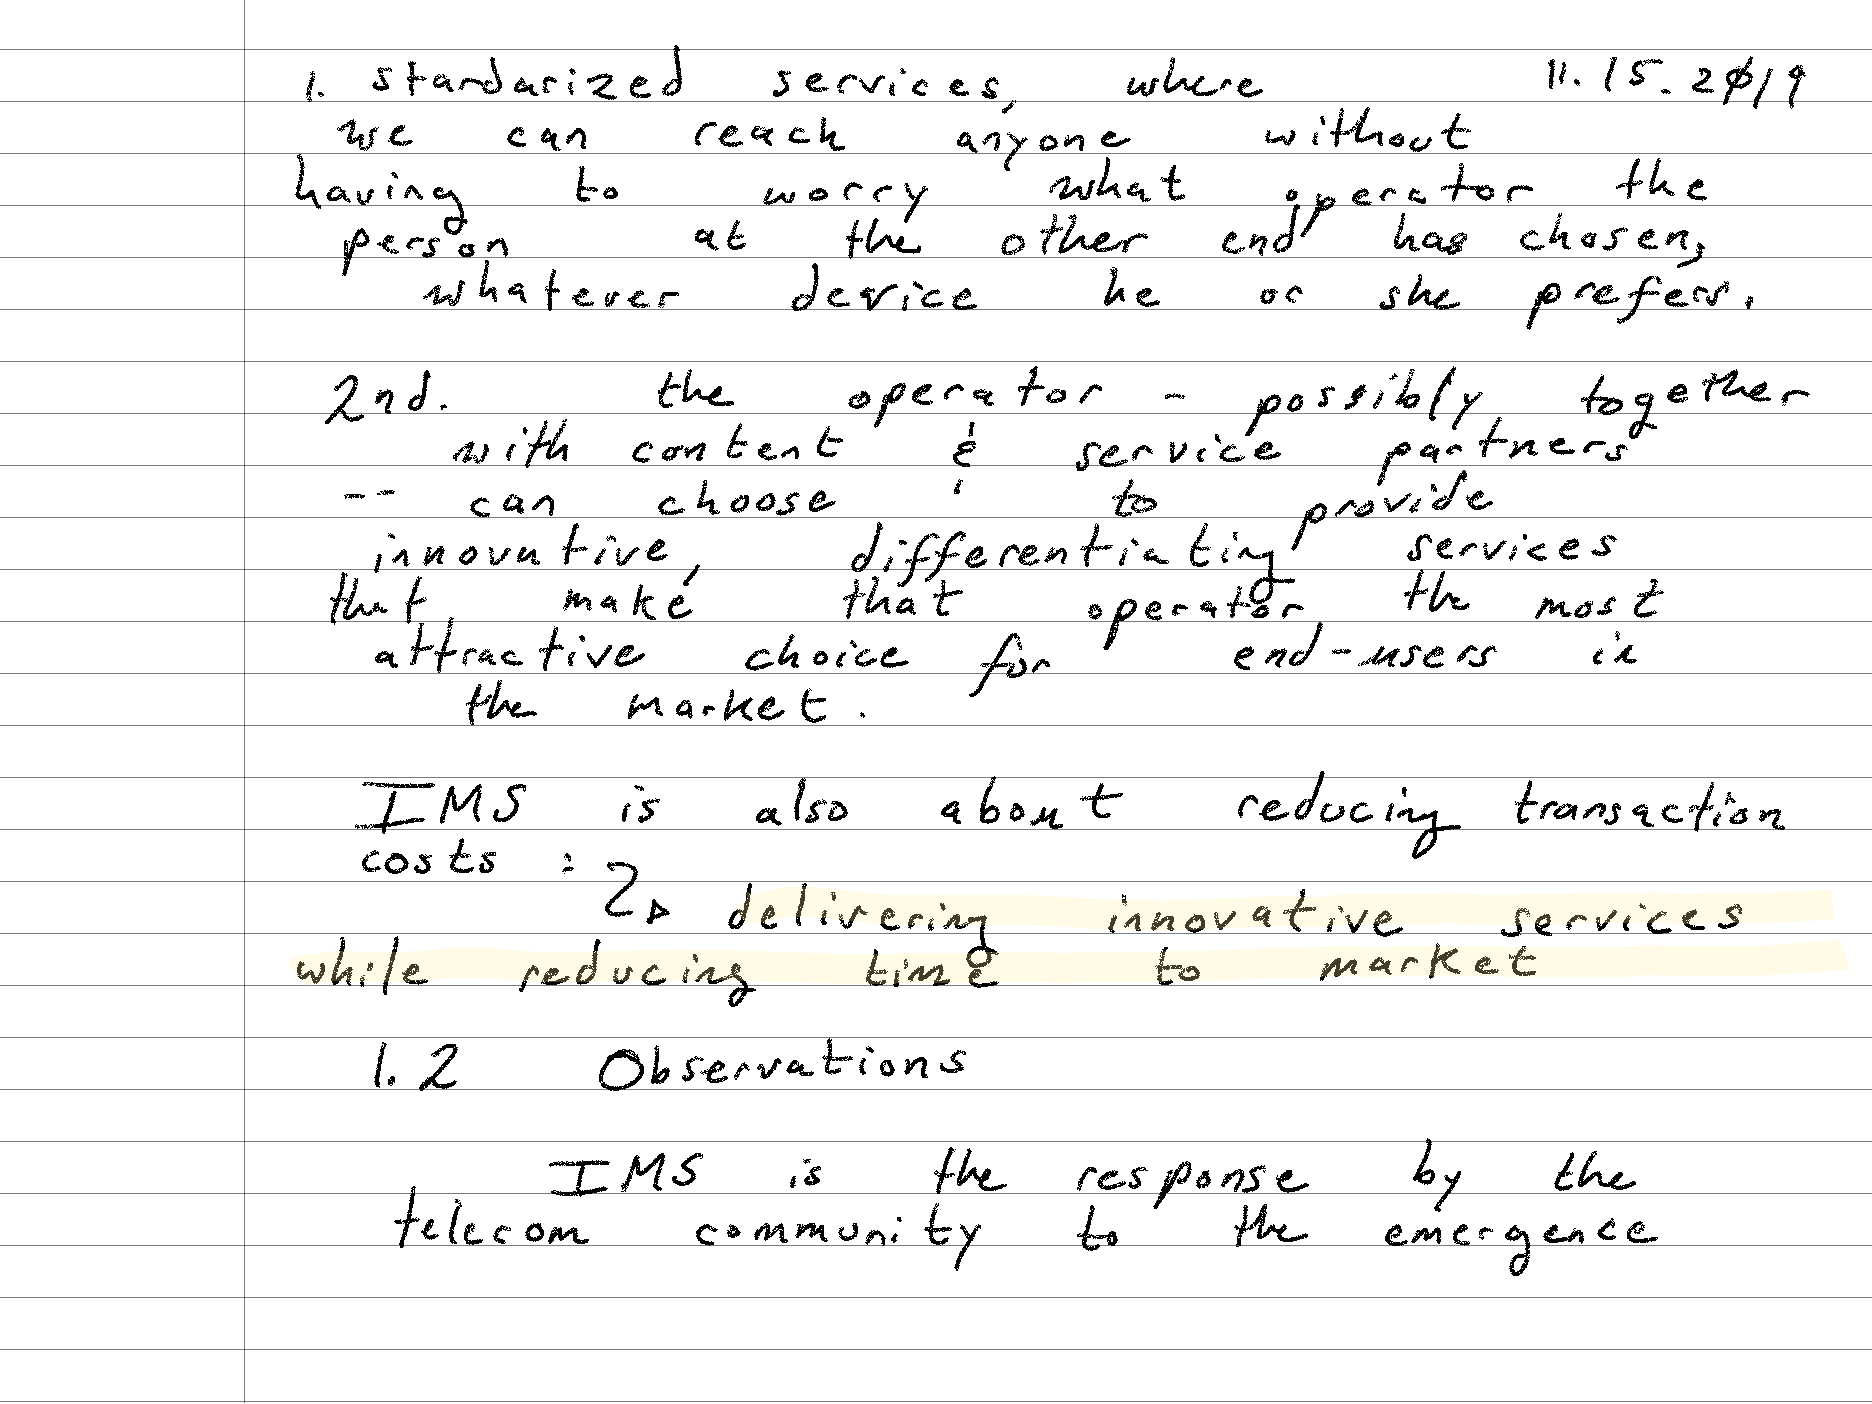 1. standarized services, where 11.15.2019
we can reach anyone without
having to worry what operator the
person at the other end has chosen,
whatever device he or she prefers.
2nd. the operator - possibly together
with content & service partners
-- can choose to provide
innovative, differentiating services
that make that operator the most
attractive choice for end-users in
the market.
IMS is also about reducing transaction
costs :
delivering innovative services
while reducing time to market
1.2 Observations
IMS is the response by the
telecom community to the emergence